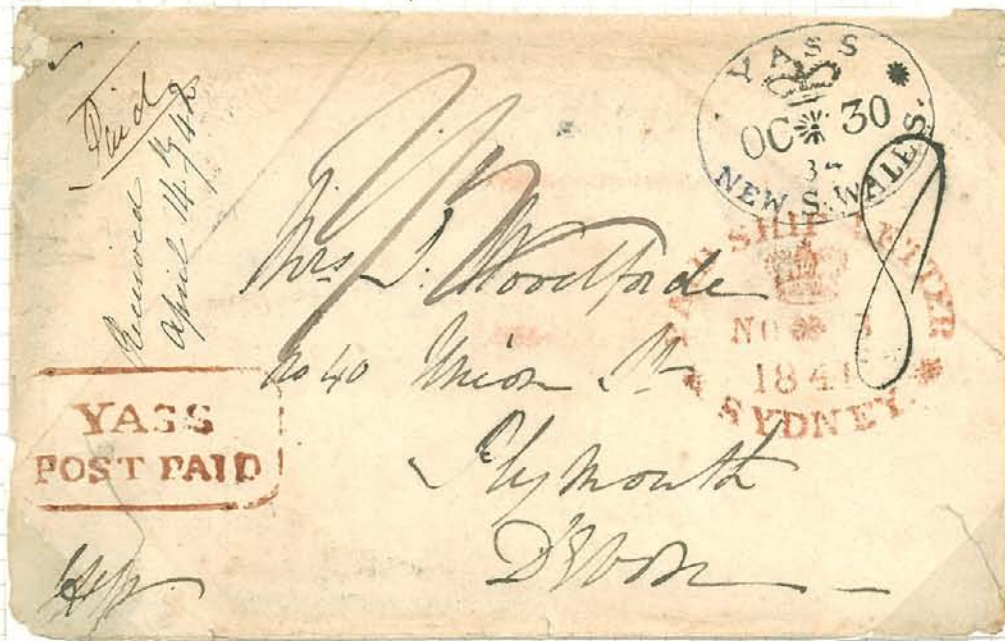 Paid
Received by
April 14/42
YASS
OC 30
NEW S. WALES.
8
SHIP LETTER
NO
1841
SYDNEY.
Mrs J. Woollforde
No 40 Union St
Plymouth
Devon
YASS
POST PAID